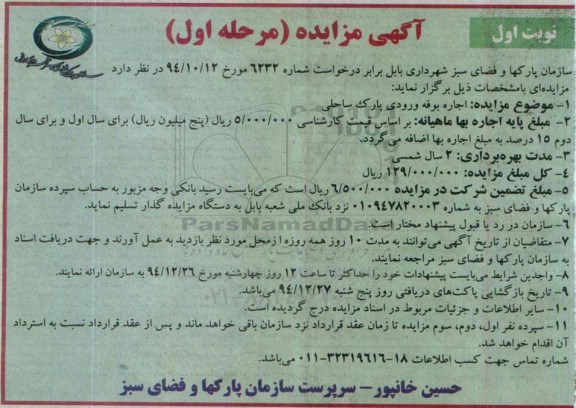 نوبت اول
آگهی مزایده (مرحله اول)
سازمان پارکها و فضای سبز شهرداری بابل برابر درخواست شماره ۶۲۳۲ مورخ ۹۴/۱۰/۱۲ در نظر دارد
مزایده‌ای بامشخصات ذیل برگزار نماید:
۱- موضوع مزایده: اجاره بوفه ورودی پارک ساحلی
۲- مبلغ پایه اجاره بها ماهیانه: بر اساس قیمت کارشناسی ۵/۰۰۰/۰۰۰ ریال (پنج میلیون ریال) برای سال اول و برای سال
دوم ۱۵ درصد به مبلغ اجاره بها اضافه می‌گردد.
۳- مدت بهره‌برداری: ۲ سال شمسی
۴- کل مبلغ مزایده: ۱۲۹/۰۰۰/۰۰۰ ریال
۵- مبلغ تضمین شرکت در مزایده ۶/۵۰۰/۰۰۰ ریال است که می‌بایست رسید بانکی وجه مزبور به حساب سپرده سازمان
پارکها و فضای سبز به شماره ۰۱۰۹۴۷۸۲۰۰۰۳ نزد بانک ملی شعبه بابل به دستگاه مزایده گذار تسلیم نماید.
۶- سازمان در رد یا قبول پیشنهاد مختار است.
ParsNamadData
۷- متقاضیان از تاریخ آگهی می‌توانند به مدت ۱۰ روز همه روزه از محل مورد نظر بازدید به عمل آورند و جهت دریافت اسناد
به سازمان پارکها و فضای سبز مراجعه نمایند.
۸- واجدین شرایط می‌بایست پیشنهادات خود را حداکثر تا ساعت ۱۲ روز چهارشنبه مورخ ۹۴/۱۲/۲۶ به سازمان ارائه نمایند.
۹- تاریخ بازگشایی پاکت‌های دریافتی روز پنج شنبه ۹۴/۱۲/۲۷ می‌باشد.
۱۰- سایر اطلاعات و جزئیات مربوط در اسناد مزایده درج گردیده است.
۱۱- سپرده نفر اول، دوم، سوم مزایده تا زمان عقد قرارداد نزد سازمان باقی خواهد ماند و پس از عقد قرارداد نسبت به استرداد
آن اقدام خواهد شد.
شماره تماس جهت کسب اطلاعات ۱۸-۳۲۳۱۹۶۱۶-۰۱۱ می‌باشد.
حسین خانپور – سرپرست سازمان پارکها و فضای سبز